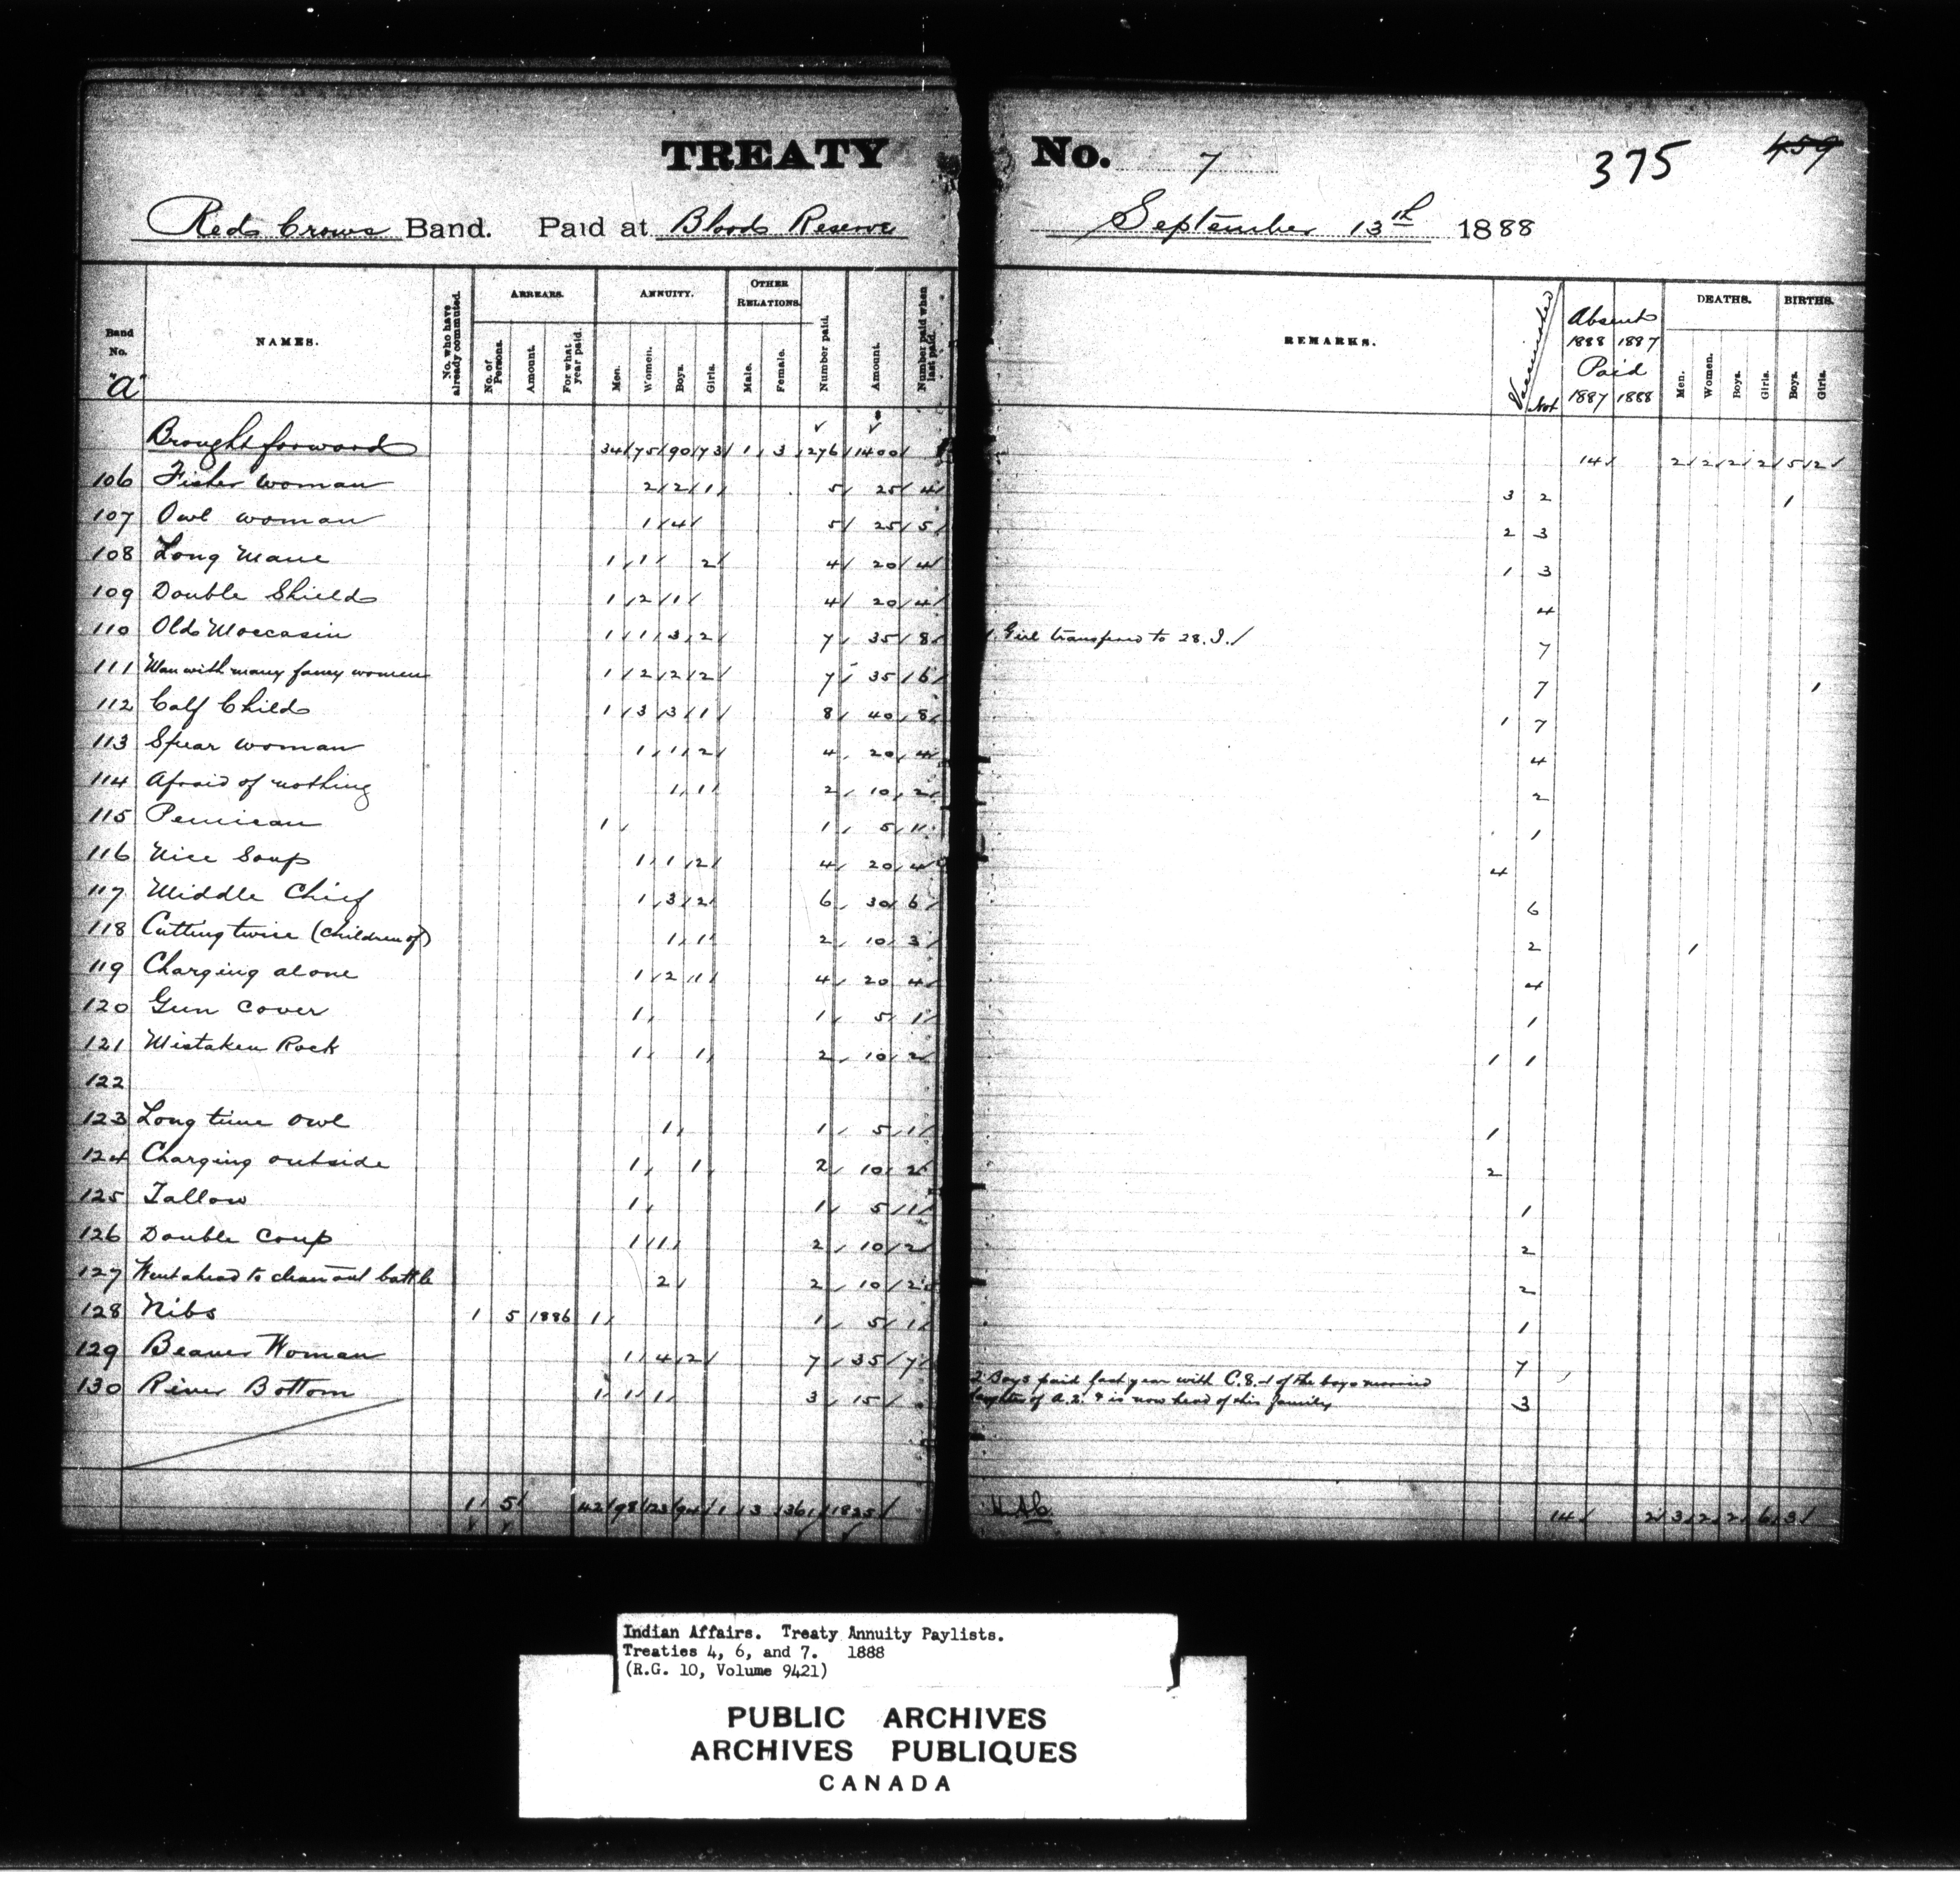 TREATY No. 7 375 459
Red Crows Band. Paid at Blood Reserve September 13th 1888
Band No. "a" NAMES. No. who have already commuted. ARREARS. No. of Persons. Amount. For what year paid. ANNUITY. Men. Women. Boys. Girls. OTHER RELATIONS. Male. Female. Number paid. Amount. Number paid when last paid. REMARKS. Vaccinated Not Absent 1888 1887 Paid 1887 1888 DEATHS. Men. Women. Boys. Girls. BIRTHS. Boys. Girls.
Brought forward 34 75 90 73 1 3 276 1400 14 2 2 2 2 5 2
106 Fisher woman 2 2 1 5 25 4 3 2 1
107 Owl woman 1 4 5 25 5 2 3
108 Long Mane 1 1 2 4 20 4 1 3
109 Double Shield 1 2 1 4 20 4 4
110 Old Moccasin 1 1 3 2 7 35 8 1 Girl transfered to 28. I. 7
111 Man with many fancy women 1 2 2 2 7 35 6 7 1
112 Calf Child 1 3 3 1 8 40 8 1 7
113 Spear woman 1 1 2 4 20 4 4
114 Afraid of nothing 1 1 2 10 2 2
115 Pemican 1 1 5 1 1
116 Nice Soup 1 1 2 4 20 4 4
117 Middle Chief 1 3 2 6 30 6 6
118 Cutting twice (children of) 1 1 2 10 3 2 1
119 Charging alone 1 2 1 4 20 4 4
120 Gun cover 1 1 5 1 1
121 Mistaken Rock 1 1 2 10 2 1 1
122
123 Long time owl 1 1 5 1 1
124 Charging outside 1 1 2 10 2 2
125 Tallow 1 1 5 1 1
126 Double Coup 1 1 2 10 2 2
127 Went ahead to clean out battle 2 2 10 2 2
128 Nibs 1 5 1886 1 1 5 1 1
129 Beaver Woman 1 4 2 7 35 7 7
130 River Bottom 1 1 1 3 15 2 Boys paid last year with C.8. 1 of the boys married
daughter of A.2. & is now head of this family 3
1 5 42 98 123 94 1 3 361 1825 14 2 3 2 2 6 3
Indian Affairs. Treaty Annuity Paylists.
Treaties 4, 6, and 7. 1888
(R.G. 10, Volume 9421)
PUBLIC ARCHIVES
ARCHIVES PUBLIQUES
CANADA